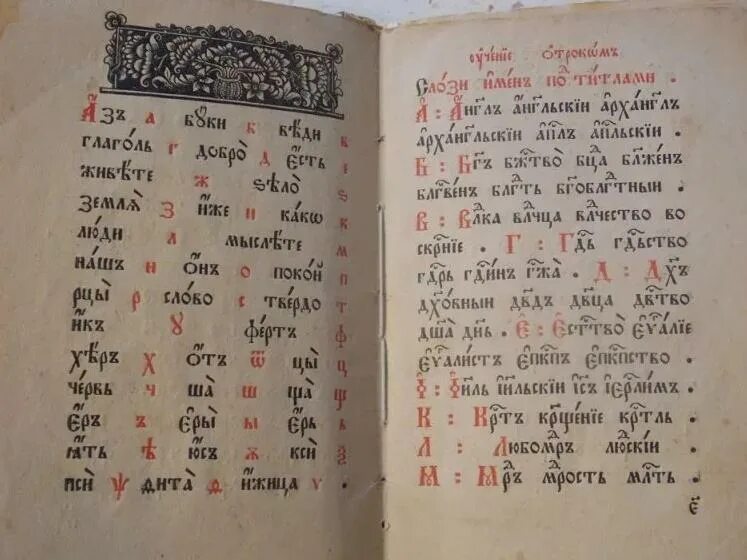 А҆́зъ а бꙋ́ки б вѣ́ди в
глаго́ль г добро̀ д є҆́сть є
живѣ́те ж ѕѣлѡ̀ ѕ
землѧ̀ з и҆́же и ка́кѡ к
лю́ди л мыслѣ́те м
на́шъ н ѻ҆́нъ о поко́й п
рцы̀ р сло́во с тве́рдо т
и҆́къ ꙋ фе́ртъ ф
хѣ́ръ х ѿ́тъ ѿ цы̀ ц
че́рвь ч ша̀ ш ща̀ щ
є҆́ръ ъ є҆ры̀ ы є҆́рь ь
ꙗ҆́ть ѣ ю҆́съ ѫ ксѝ ѯ
псѝ ѱ ѳита̀ ѳ и҆́жица ѵ .
оу҆че́нїе ѻ҆трокѡ́мъ
Сло́зи и҆ме́нъ по́д̾ ти́тлами .
А҆ : А҆́гг҃лъ а҆́гг҃льскїи а҆рха́гг҃лъ
а҆рха́гг҃льскїи а҆пⷭ҇лъ а҆пⷭ҇льскїи .
Б : Бг҃ъ бж҃тво̀ бц҃а бл҃же́нъ
блгⷭ҇ве́нъ блгⷣть бг҃облгⷣтныи .
В : Влⷣка влⷣчца влⷣчество во
скрⷭ҇нїе . Г : Гдⷭ҇ь гдⷭ҇ьство
гдⷭ҇рь гдⷭ҇инъ гж҃а . Д : Дх҃ъ
дх҃о́вныи дв҃дъ дв҃ца дв҃тво
дш҃а дн҃ь . Є҆ : Є҆стⷭ҇тво̀ є҆ѵⷢ҇алїе
є҆ѵⷢ҇али́стъ є҆пⷭ҇кпъ є҆пⷭ҇кпство .
І҆ : І҆и҃ль і҆и҃льскїи і҆и҃съ і҆ерⷭ҇ли́мъ .
К : Крⷭ҇тъ крⷳ҇ще́нїе крⷭ҇ти́ль
Л : Любомⷣръ людⷭ҇кі́и .
М : Мⷣръ мⷣрость млⷭ҇ть .
є҃